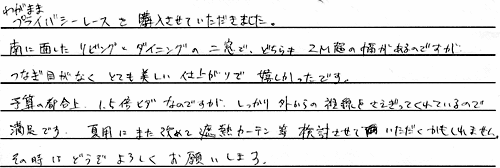 わがまま
プライバシーレースを購入させていただきました。
南に面したリビングとダイニングの二窓で、どちらも2M超の幅があるのですが
つなぎ目がなくとても美しい仕上がりで嬉しかったです。
予算の都合上、1.5倍ヒダなのですが、しっかり外からの視線をさえぎってくれているので
満足です。夏用にまた改めて遮熱カーテン等検討させていただくかもしれません。
その時はどうぞよろしくお願いします。